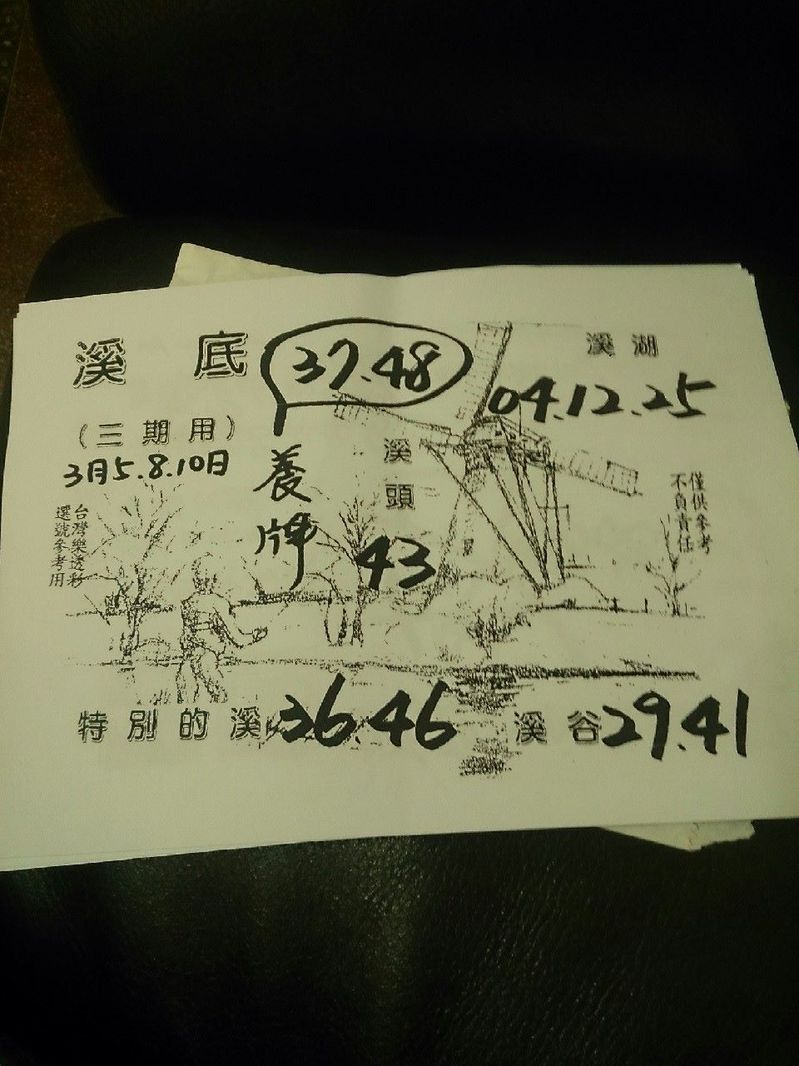 溪底
37.48
溪湖
04.12.25
(三期用)
3月5.8.10日
養牌
溪頭
43
僅供參考
不負責任
台灣樂透彩
選號參考用
特別的溪
36.46
溪谷
29.41